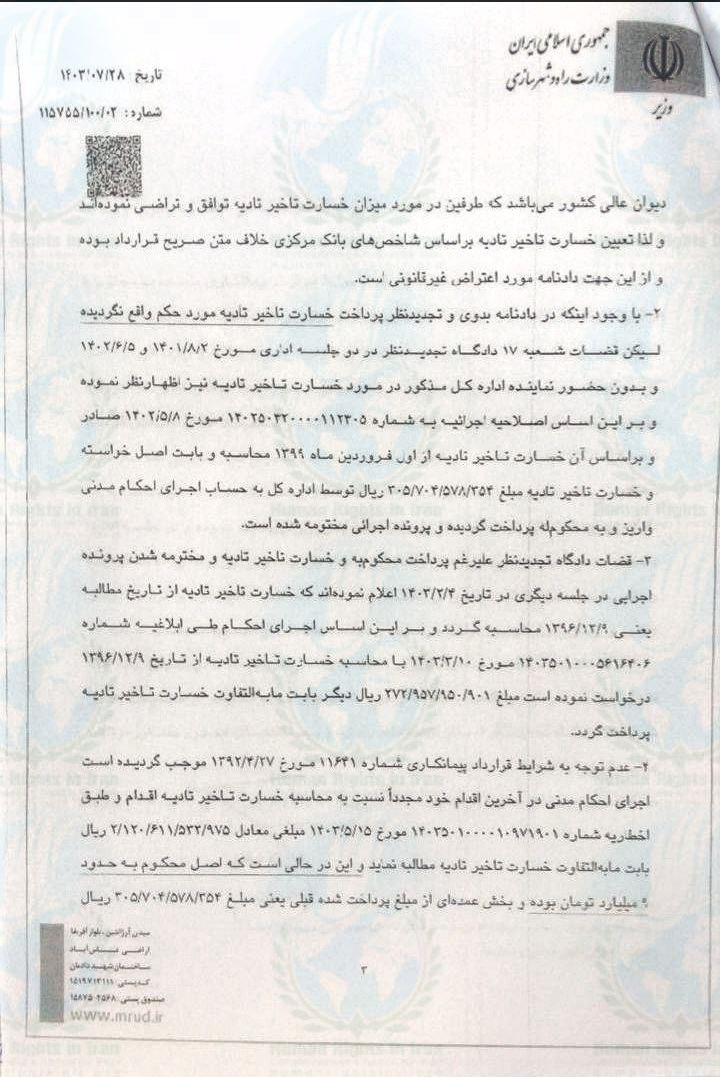 جمهوری اسلامی ایران
وزارت راه و شهرسازی
وزیر
تاریخ ۱۴۰۳/۰۷/۲۸
شماره: ۱۱۵۷۵۵/۱۰۰/۰۲
دیوان عالی کشور می‌باشد که طرفین در مورد میزان خسارت تاخیر تادیه توافق و تراضی نموده‌اند
و لذا تعیین خسارت تاخیر تادیه براساس شاخص‌های بانک مرکزی خلاف متن صریح قرارداد بوده
و از این جهت دادنامه مورد اعتراض غیرقانونی است.
۲- با وجود اینکه در دادنامه بدوی و تجدیدنظر پرداخت خسارت تاخیر تادیه مورد حکم واقع نگردیده
لیکن قضات شعبه ۱۷ دادگاه تجدیدنظر در دو جلسه اداری مورخ ۱۴۰۱/۸/۲ و ۱۴۰۲/۶/۵
و بدون حضور نماینده اداره کل مذکور در مورد خسارت تاخیر تادیه نیز اظهارنظر نموده
و بر این اساس اصلاحیه اجرائیه به شماره ۱۴۰۲۵۰۳۲۰۰۰۰۱۱۲۳۰۵ مورخ ۱۴۰۲/۵/۸ صادر
و براساس آن خسارت تاخیر تادیه از اول فروردین ماه ۱۳۹۹ محاسبه و بابت اصل خواسته
و خسارت تاخیر تادیه مبلغ ۳۰۵/۷۰۴/۵۷۸/۳۵۴ ریال توسط اداره کل به حساب اجرای احکام مدنی
واریز و به محکوم‌له پرداخت گردیده و پرونده اجرائی مختومه شده است.
۳- قضات دادگاه تجدیدنظر علیرغم پرداخت محکوم‌به و خسارت تاخیر تادیه و مختومه شدن پرونده
اجرایی در جلسه دیگری در تاریخ ۱۴۰۳/۲/۴ اعلام نموده‌اند که خسارت تاخیر تادیه از تاریخ مطالبه
یعنی ۱۳۹۶/۱۲/۹ محاسبه گردد و بر این اساس اجرای احکام طی ابلاغیه شماره
۱۴۰۳۵۰۱۰۰۰۵۶۱۶۴۰۶ مورخ ۱۴۰۳/۳/۱۰ با محاسبه خسارت تاخیر تادیه از تاریخ ۱۳۹۶/۱۲/۹
درخواست نموده است مبلغ ۲۷۲/۹۵۷/۹۵۰/۹۰۱ ریال دیگر بابت مابه‌التفاوت خسارت تاخیر تادیه
پرداخت گردد.
۴- عدم توجه به شرایط قرارداد پیمانکاری شماره ۱۱۶۴۱ مورخ ۱۳۹۲/۴/۲۷ موجب گردیده است
اجرای احکام مدنی در آخرین اقدام خود مجدداً نسبت به محاسبه خسارت تاخیر تادیه اقدام و طبق
اخطاریه شماره ۱۴۰۳۵۰۱۰۰۰۰۱۰۹۷۱۹۰۱ مورخ ۱۴۰۳/۵/۱۵ مبلغی معادل ۲/۱۲۰/۶۱۱/۵۳۲/۹۷۵ ریال
بابت مابه‌التفاوت خسارت تاخیر تادیه مطالبه نماید و این در حالی است که اصل محکوم به حدود
میلیارد تومان بوده و بخش عمده‌ای از مبلغ پرداخت شده قبلی یعنی مبلغ ۳۰۵/۷۰۴/۵۷۸/۳۵۴ ریال
۳
میدان آرژانتین، بلوار آفریقا
اراضی عباس آباد
ساختمان شهید دادمان
کدپستی: ۱۵۱۹۷۱۳۱۱۱
صندوق پستی: ۱۵۸۷۵-۴۵۶۸
www.mrud.ir
Human Rights in Iran